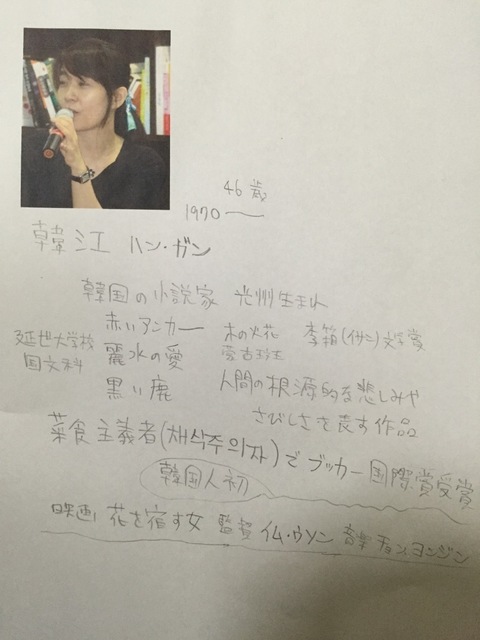 46歳
1970 ——
韓江 ハン・ガン
韓国の小説家 光州生まれ
赤いアンカー 木の火花 李箱(イサン)文学賞
延世大学校 麗水の愛 蒙古斑
国文科 黒い鹿 人間の根源的な悲しみや
さびしさを表す作品
菜食主義者(채식주의자)でブッカー国際賞受賞
韓国人初
映画 花を宿す女 監督 イム・ウソン 音楽 チョン・ヨンジン